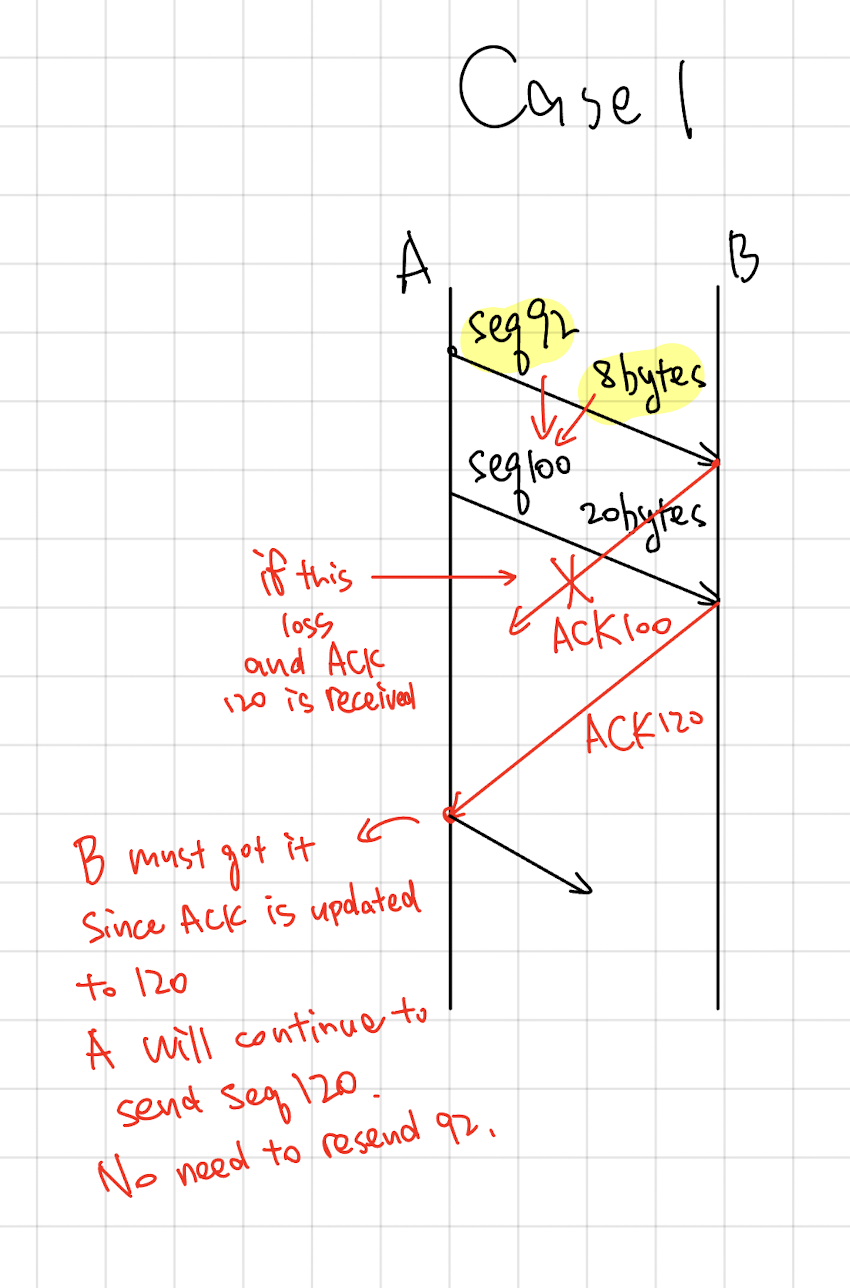 Case 1
A
B
seq 92
8bytes
seq100
20bytes
if this
loss
and ACK
120 is received
ACK100
ACK120
B must got it
Since ACK is updated
to 120
A will continue to
send seq 120.
No need to resend 92.